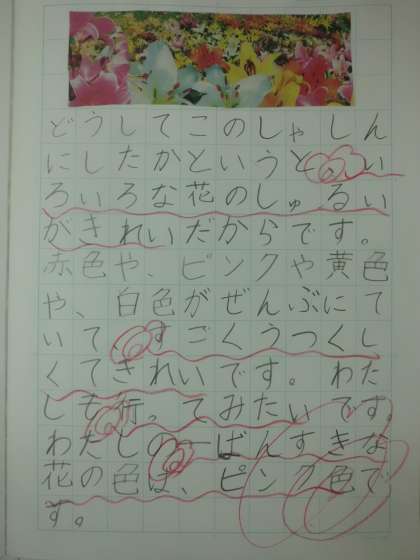 どうしてこのしゃしん
にしたかというと、い
ろいろな花のしゅるい
がきれいだからです。
赤色や、ピンクや黄色
や、白色がぜんぶにて
いて、すごくうつくし
くてきれいです。わた
しも術。てみたいです。
わたしの一ばんすきな
花の色は、ピンク色で
す。